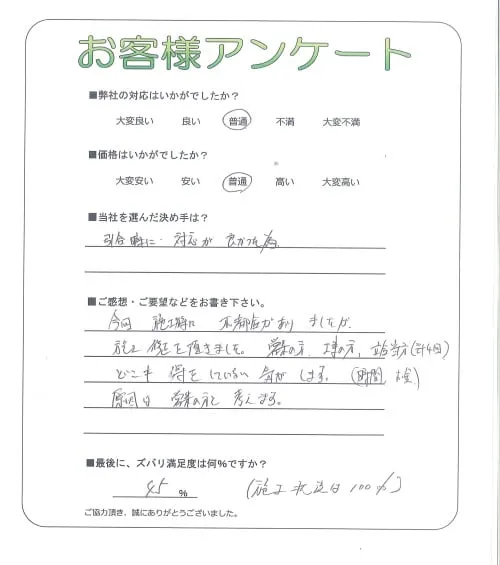 お客様アンケート
■弊社の対応はいかがでしたか？
大変良い 良い 普通 不満 大変不満
■価格はいかがでしたか？
大変安い 安い 普通 高い 大変高い
■当社を選んだ決め手は？
引合時に 対応が 良かった為
■ご感想・ご要望などをお書き下さい。
今回 施工時に 不都合がありましたが
施工修正を頂きました。 営業の方、工事の方、 (計4回)
どこも 得をしていない 気がします。 (時間、お金)
原因は 営業の方と 考えます。
■最後に、ズバリ満足度は何%ですか？
45 % (施工状況は100%)
ご協力頂き、誠にありがとうございました。